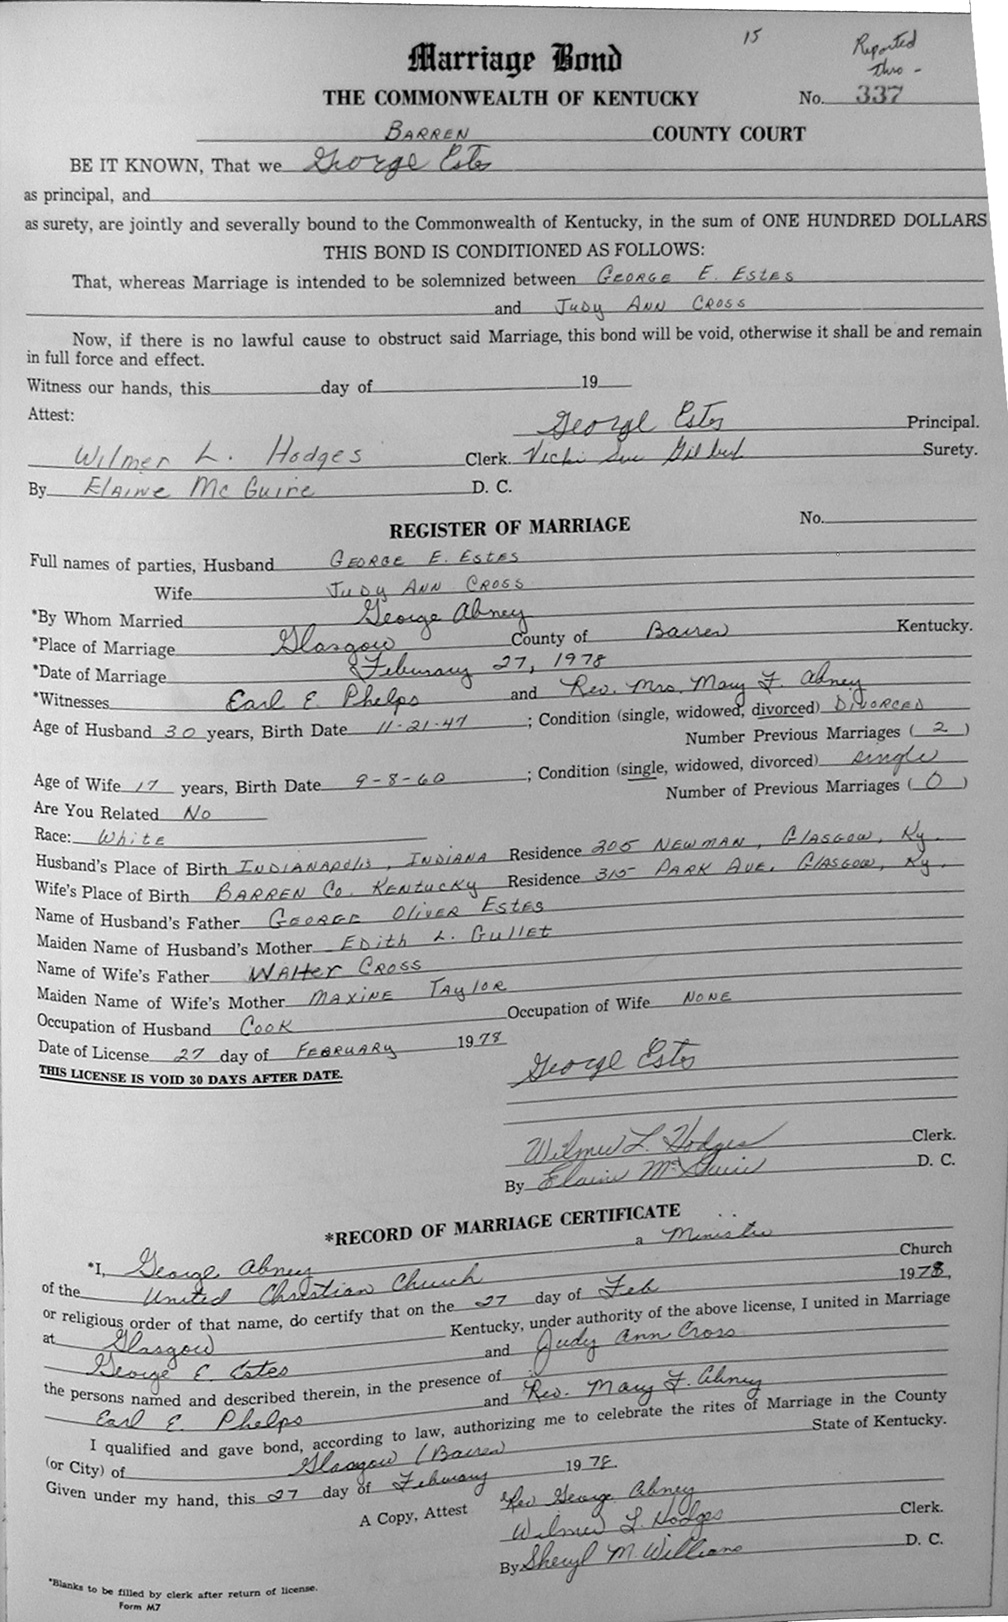 15
Reported
thro -
Marriage Bond
THE COMMONWEALTH OF KENTUCKY No. 337
BARREN COUNTY COURT
BE IT KNOWN, That we George Estes
as principal, and
as surety, are jointly and severally bound to the Commonwealth of Kentucky, in the sum of ONE HUNDRED DOLLARS
THIS BOND IS CONDITIONED AS FOLLOWS:
That, whereas Marriage is intended to be solemnized between GEORGE E. ESTES
and JUDY ANN CROSS
Now, if there is no lawful cause to obstruct said Marriage, this bond will be void, otherwise it shall be and remain
in full force and effect.
Witness our hands, this day of 19
Attest:
George Estes Principal.
Wilmer L. Hodges Clerk. Vicki Sue Gilbert Surety.
By Elaine McGuire D. C.
REGISTER OF MARRIAGE No.
Full names of parties, Husband GEORGE E. ESTES
Wife JUDY ANN CROSS
*By Whom Married George Abney
*Place of Marriage Glasgow County of Barren Kentucky.
*Date of Marriage Feburary 27, 1978
*Witnesses Earl E. Phelps and Rev. Mrs. Mary F. Abney
Age of Husband 30 years, Birth Date 11-21-47 ; Condition (single, widowed, divorced) DIVORCED
Number Previous Marriages ( 2 )
Age of Wife 17 years, Birth Date 9-8-60 ; Condition (single, widowed, divorced) single
Number of Previous Marriages ( 0 )
Are You Related No
Race: White
Husband's Place of Birth INDIANAPOLIS, INDIANA Residence 305 NEWMAN, GLASGOW, Ky.
Wife's Place of Birth BARREN Co. KENTUCKY Residence 315 PARK AVE. GLASGOW, Ky.
Name of Husband's Father GEORGE OLIVER ESTES
Maiden Name of Husband's Mother EDITH L. GULLET
Name of Wife's Father WALTER CROSS
Maiden Name of Wife's Mother MAXINE TAYLOR
Occupation of Husband COOK Occupation of Wife NONE
Date of License 27 day of FEBRUARY 1978
THIS LICENSE IS VOID 30 DAYS AFTER DATE.
George Estes
Wilmer L. Hodges Clerk.
By Elaine McGuire D. C.
*RECORD OF MARRIAGE CERTIFICATE
*I, George Abney a Minister
of the United Christian Church Church
or religious order of that name, do certify that on the 27 day of Feb 1978,
at Glasgow Kentucky, under authority of the above license, I united in Marriage
George E. Estes and Judy Ann Cross
the persons named and described therein, in the presence of
Earl E. Phelps and Rev. Mary F. Abney
I qualified and gave bond, according to law, authorizing me to celebrate the rites of Marriage in the County
(or City) of Glasgow (Barren) State of Kentucky.
Given under my hand, this 27 day of Feburary 1978.
Rev George Abney
A Copy, Attest Wilmer L. Hodges Clerk.
By Sheryl M. Williams D. C.
*Blanks to be filled by clerk after return of license.
Form M7